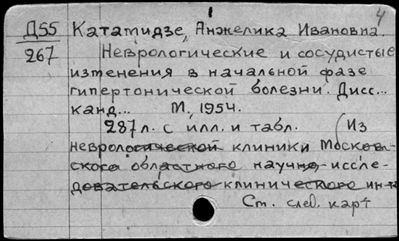 4
Д55 Катамидзе, Анжелика Ивановна.
267 Неврологические и сосудистые
изменения в начальной фазе
гипертонической болезни. Дисс...
канд... М., 1954.
287 л. с илл. и табл. (Из
неврологической клиники Москов-
ского областного научно-иссле-
довательского клинического ин-та
См. след. карт